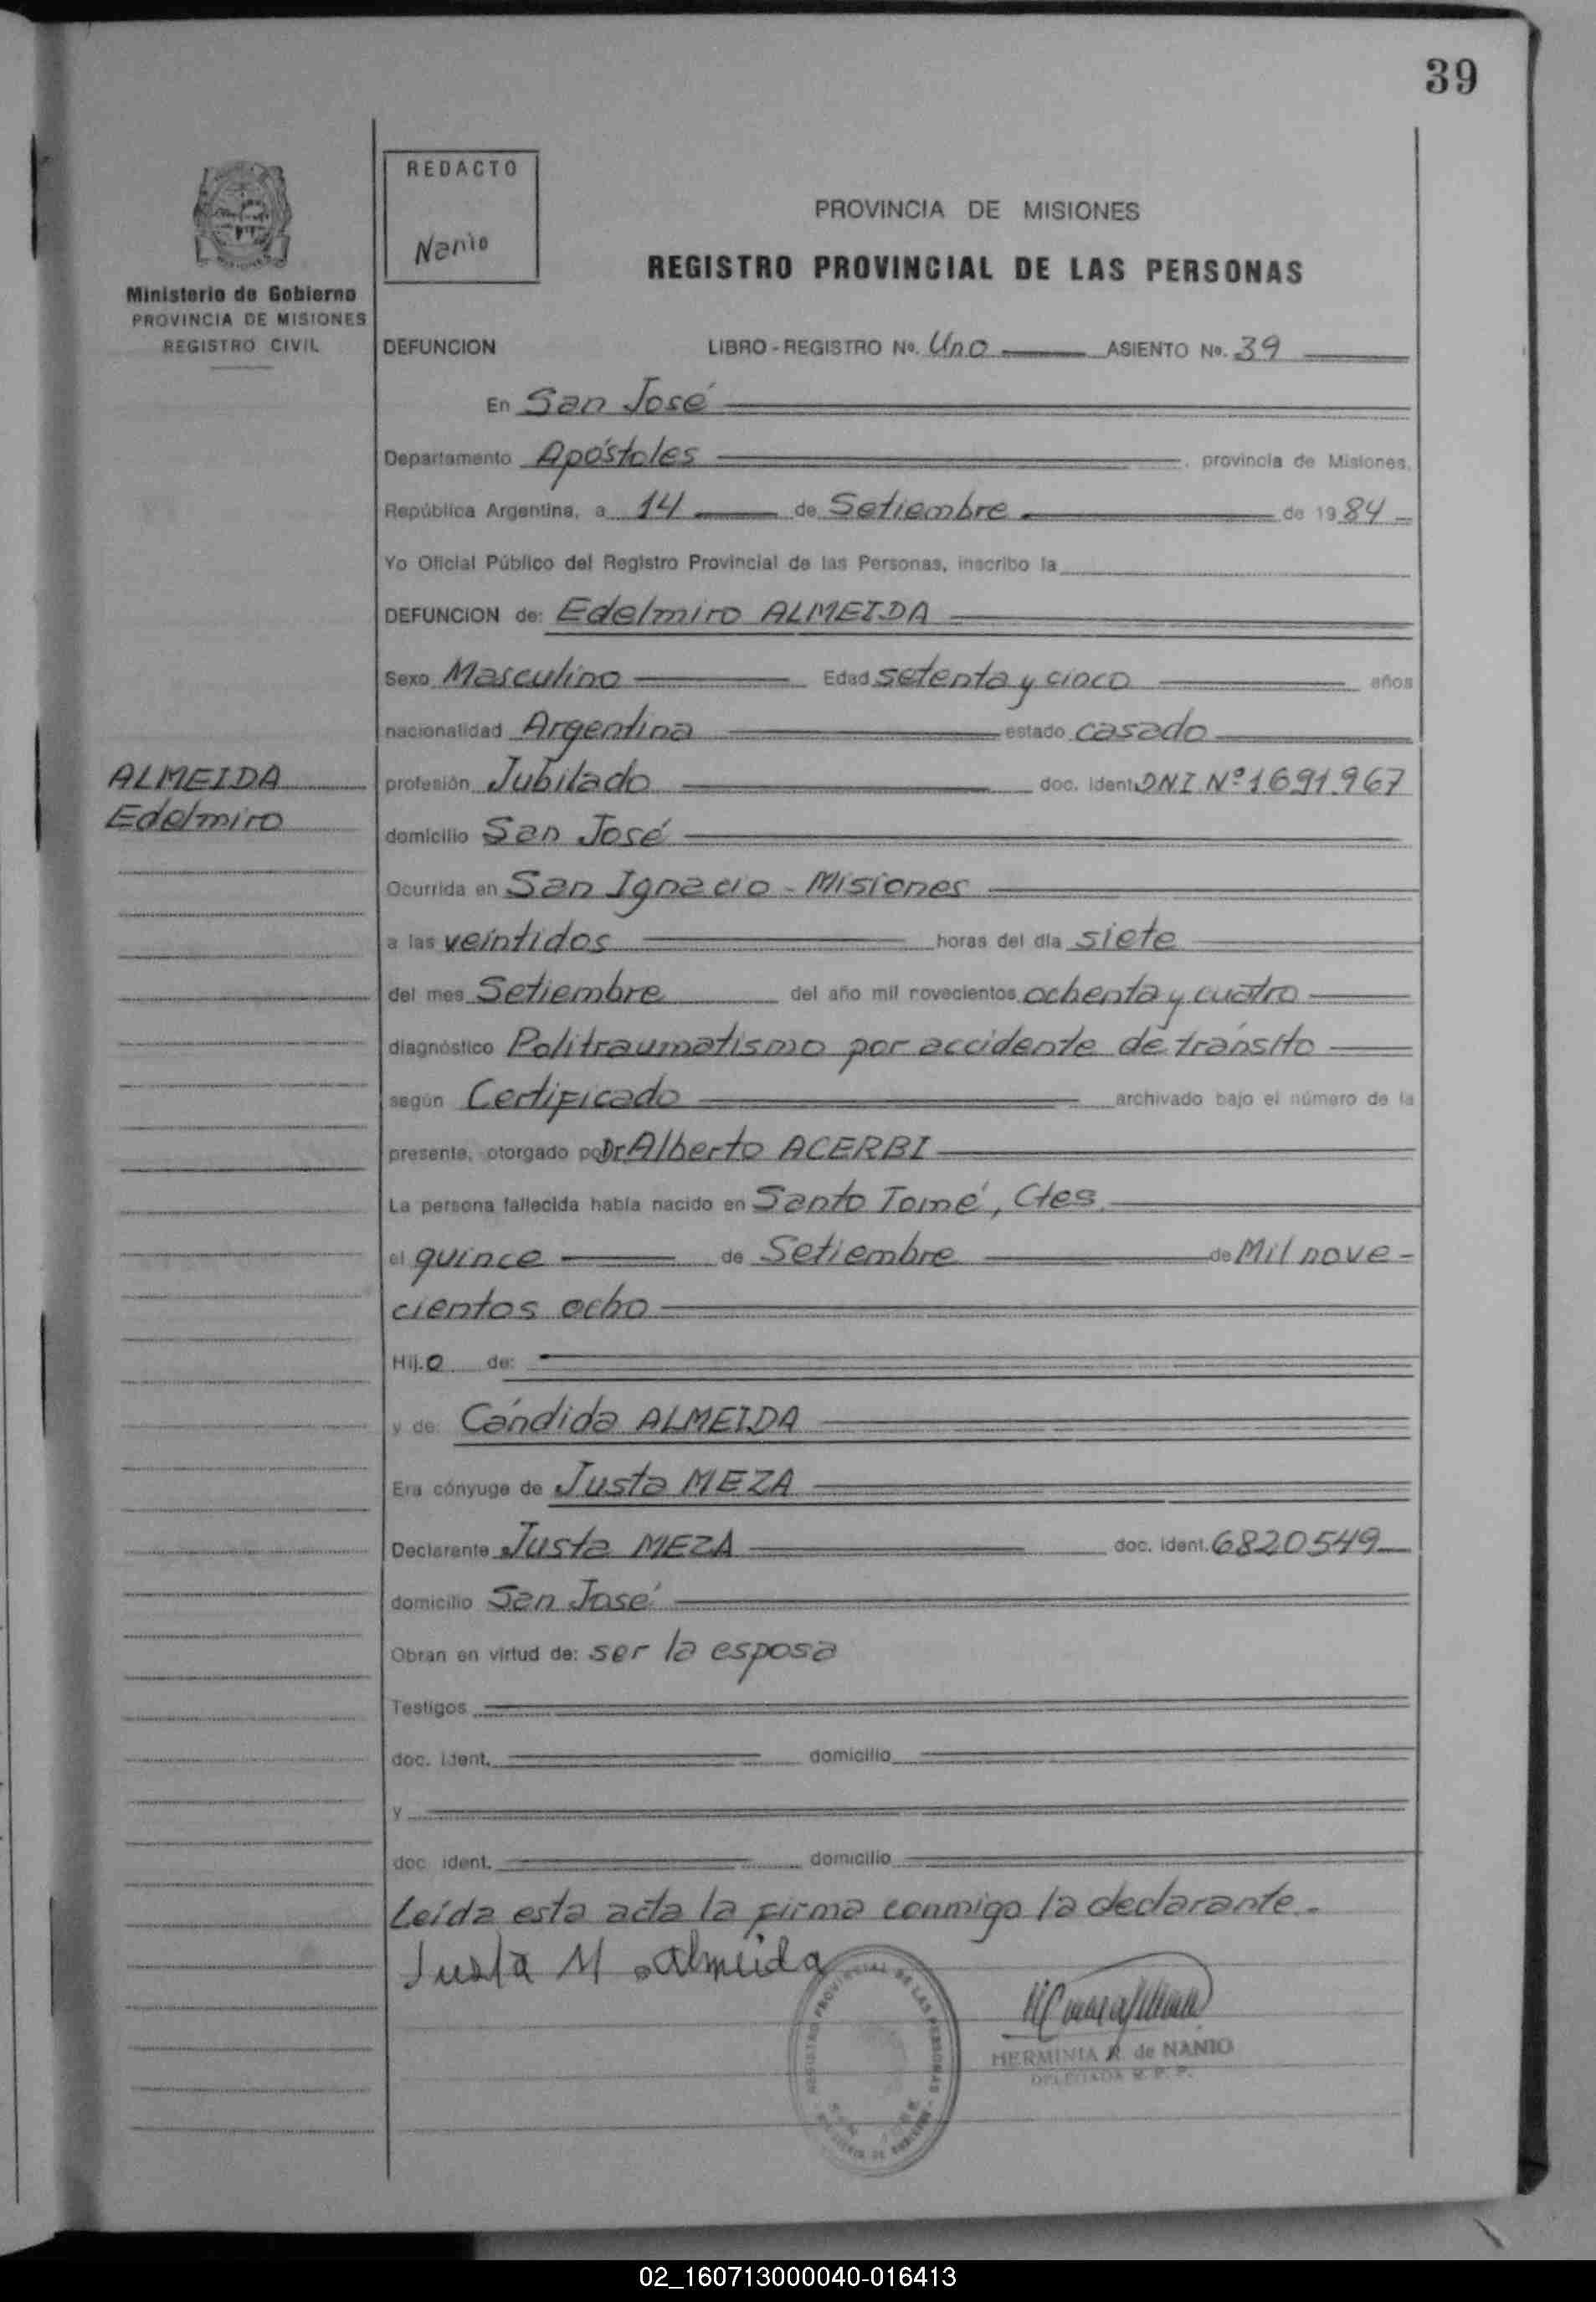 39
REDACTO
Nanio
Ministerio de Gobierno
PROVINCIA DE MISIONES
REGISTRO CIVIL
PROVINCIA DE MISIONES
REGISTRO PROVINCIAL DE LAS PERSONAS
DEFUNCION LIBRO-REGISTRO No. Uno ASIENTO No. 39
En San José
Departamento Apóstoles, provincia de Misiones,
República Argentina, a 14 de Setiembre de 1984
Yo Oficial Público del Registro Provincial de las Personas, inscribo la
DEFUNCION de: Edelmiro ALMEIDA
Sexo Masculino Edad setenta y cinco años
nacionalidad Argentina estado casado
ALMEIDA
Edelmiro
profesión Jubilado doc. ident. DNI Nº 1691967
domicilio San José
Ocurrida en San Ignacio - Misiones
a las veintidos horas del día siete
del mes Setiembre del año mil novecientos ochenta y cuatro
diagnóstico Politraumatismo por accidente de tránsito
según Certificado archivado bajo el número de la
presente, otorgado por Dr Alberto ACERBI
La persona fallecida había nacido en Santo Tomé, Ctes.
el quince de Setiembre de Mil nove-
cientos ocho
Hij.o de:
y de: Cándida ALMEIDA
Era cónyuge de Justa MEZA
Declarante Justa MEZA doc. ident. 6820549
domicilio San José
Obran en virtud de: ser la esposa
Testigos
doc. ident. domicilio
y
doc. ident. domicilio
Leída esta acta la firma conmigo la declarante.-
Justa M de almeida
REGISTRO PROVINCIAL DE LAS PERSONAS
HERMINIA R. de NANIO
DELEGADA R. P. P.
02_160713000040-016413